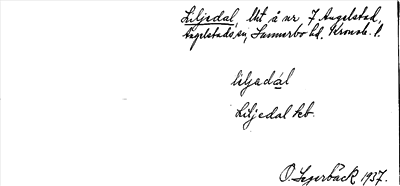 Liljedal, lht å nr 7 Angelstad,
Angelstads sn, Sunnerbo hd, Kronob. l.
liljadál
Liljedal kb.
O. Segerbäck 1937.